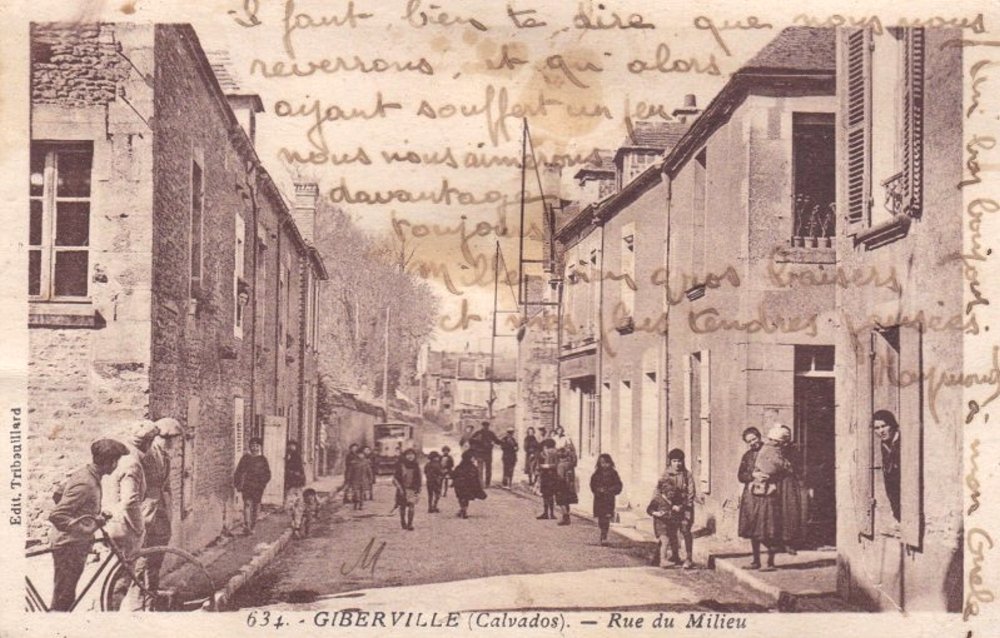 Il faut bien te dire que nous nous
reverrons, et qu'alors
ayant souffert un peu
nous nous aimerons
davantage
toujours
Mille bons gros baisers
et mes plus tendres pensées
Raymond
Un bon bonjour à mon
M
Edit. Tribouillard
634. - GIBERVILLE (Calvados). — Rue du Milieu